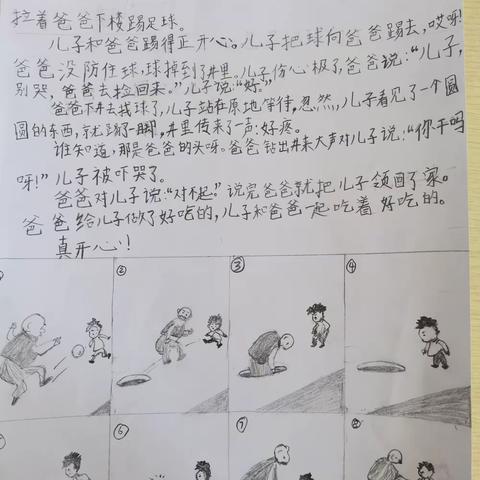 拉着爸爸下楼踢足球。
儿子和爸爸踢得正开心。儿子把球向爸爸踢去，哎呀!
爸爸没防住球，球掉到了井里。儿子伤心极了，爸爸说：“儿子，
别哭，爸爸去捡回来。”儿子说：“好。”
爸爸下井去找球了，儿子站在原地等待，忽然，儿子看见了一个圆
圆的东西，就踢了一脚，井里传来了一声：好疼。
谁知道，那是爸爸的头呀。爸爸钻出井来大声对儿子说：“你干吗
呀!”儿子被吓哭了。
爸爸对儿子说：“对不起。”说完爸爸就把儿子领回了家。
爸爸给儿子做了好吃的，儿子和爸爸一起吃着好吃的。
真开心!
② ③ ④
⑥ ⑦ ⑧